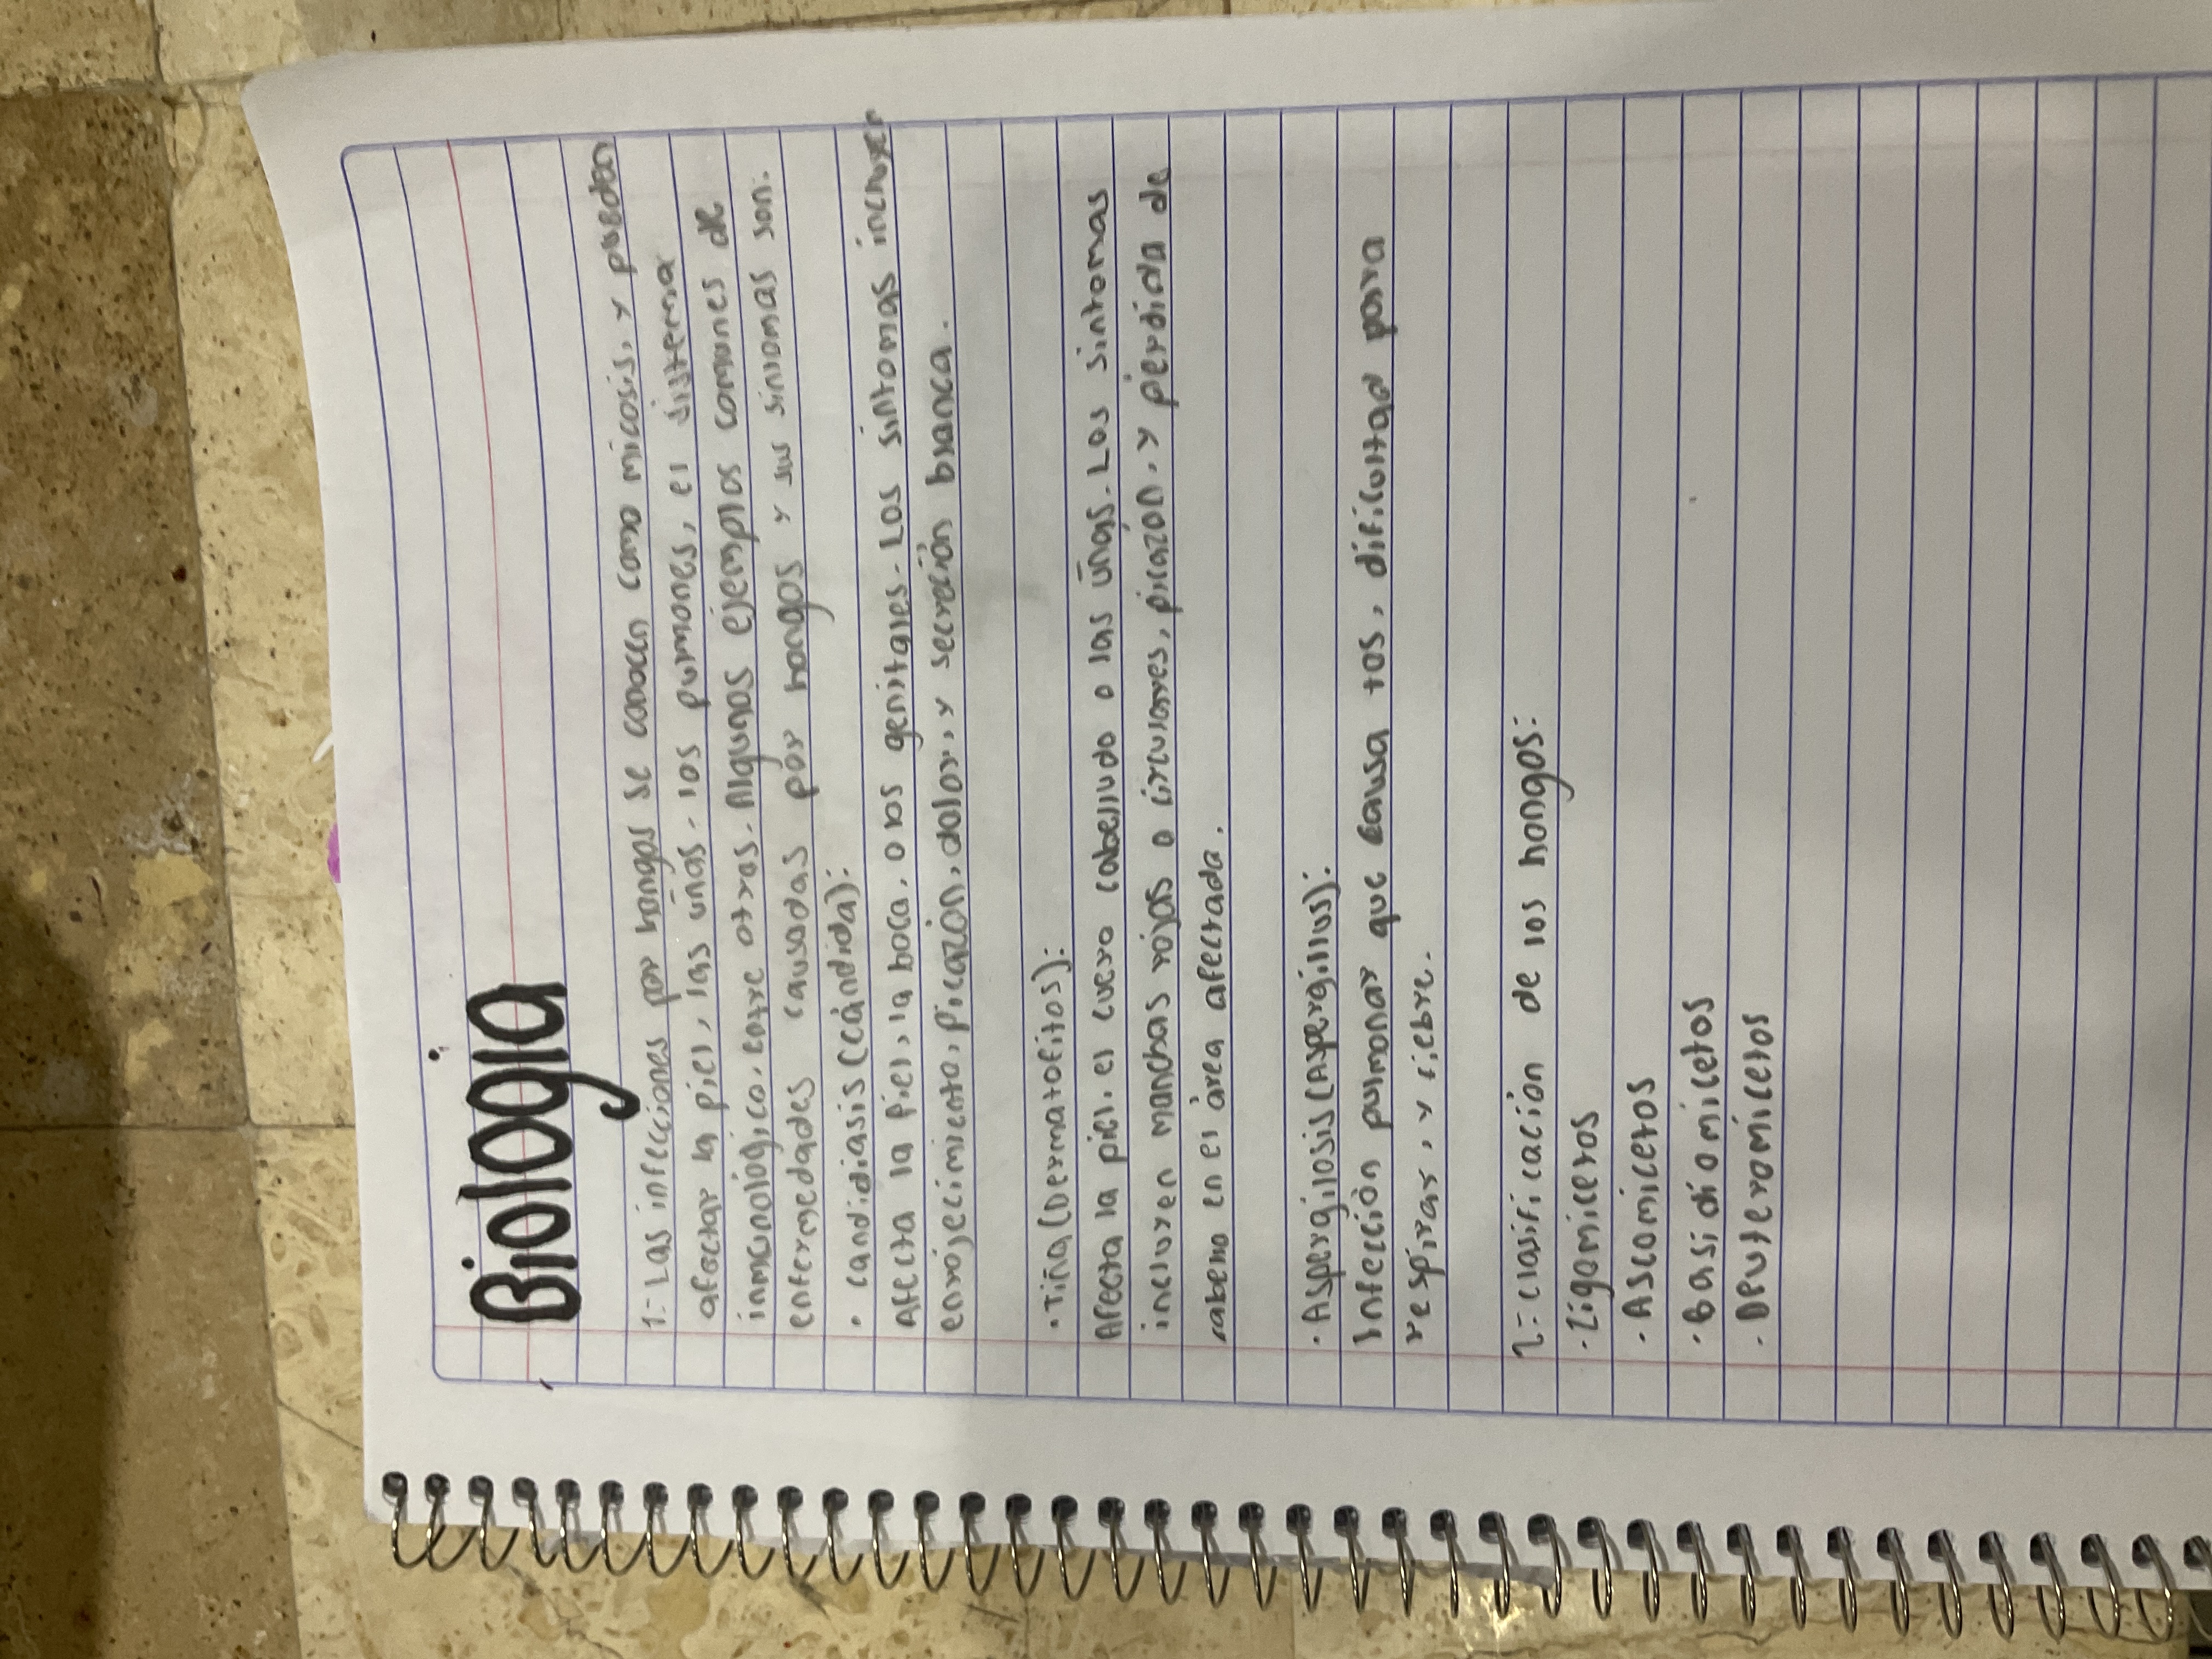 Biología
1-Las infecciones por hongos se conocen como micosis, y pueden
afectar la piel, las uñas, los pulmones, el sistema
inmunológico, entre otras. Algunos ejemplos comunes de
enfermedades causadas por hongos y sus sintomas son:
• candidiasis (cándida):
Afecta la piel, la boca, o los genitales. Los sintomas incluyen
enrojecimiento, picazón, dolor, y secreción blanca.
• Tiña (Dermatofitos):
Afecta la piel, el cuero cabelludo o las uñas. Los sintomas
incluyen manchas rojas o circulares, picazón, y perdida de
cabello en el área afectada.
• Aspergilosis (Aspergillus):
Infección pulmonar que causa tos, dificultad para
respirar, y fiebre.
2-clasificación de los hongos:
• Zigomicetos
• Ascomicetos
• Basidiomicetos
• Deuteromicetos